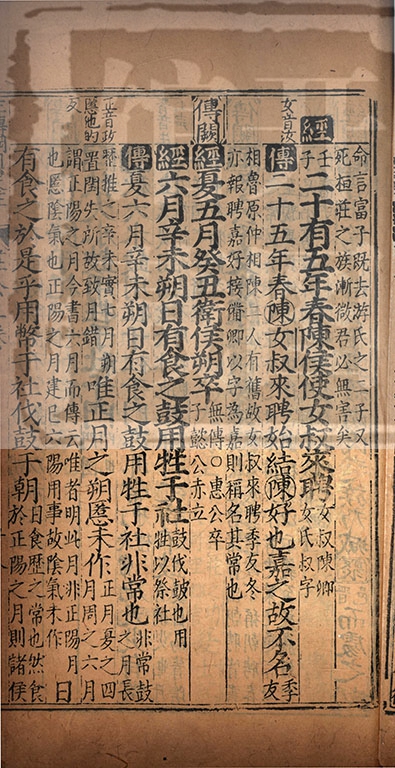 命言富子既去游氏之二子又
死桓莊之族漸微君必無害矣
經壬子二十有五年春陳侯使女叔來聘女叔陳卿女氏叔字
女音汝
傳二十五年春陳女叔來聘始結陳好也嘉之故不名季友
相魯原仲相陳二人有舊故女叔來聘季友冬
亦報聘嘉好接備卿以字為嘉則稱名其常也
傳闕
經夏五月癸丑衛侯朔卒無傳○惠公卒子懿公赤立
經六月辛未朔日有食之鼓用牲于社鼓伐鼓也用牲以祭社
傳夏六月辛未朔日有食之鼓用牲于社非常也非常鼓之月長
曆推之辛未實七月朔置閏失所故致月錯
正音政慝他的友
唯正月之朔慝未作正月夏之四月周之六月
謂正陽之月今書六月而傳云唯者明此月非正陽月
也慝陰氣也正陽之月建巳六陽用事故陰氣未作日
有食之於是乎用幣于社伐鼓于朝日食歷之常也然食於正陽之月則諸侯